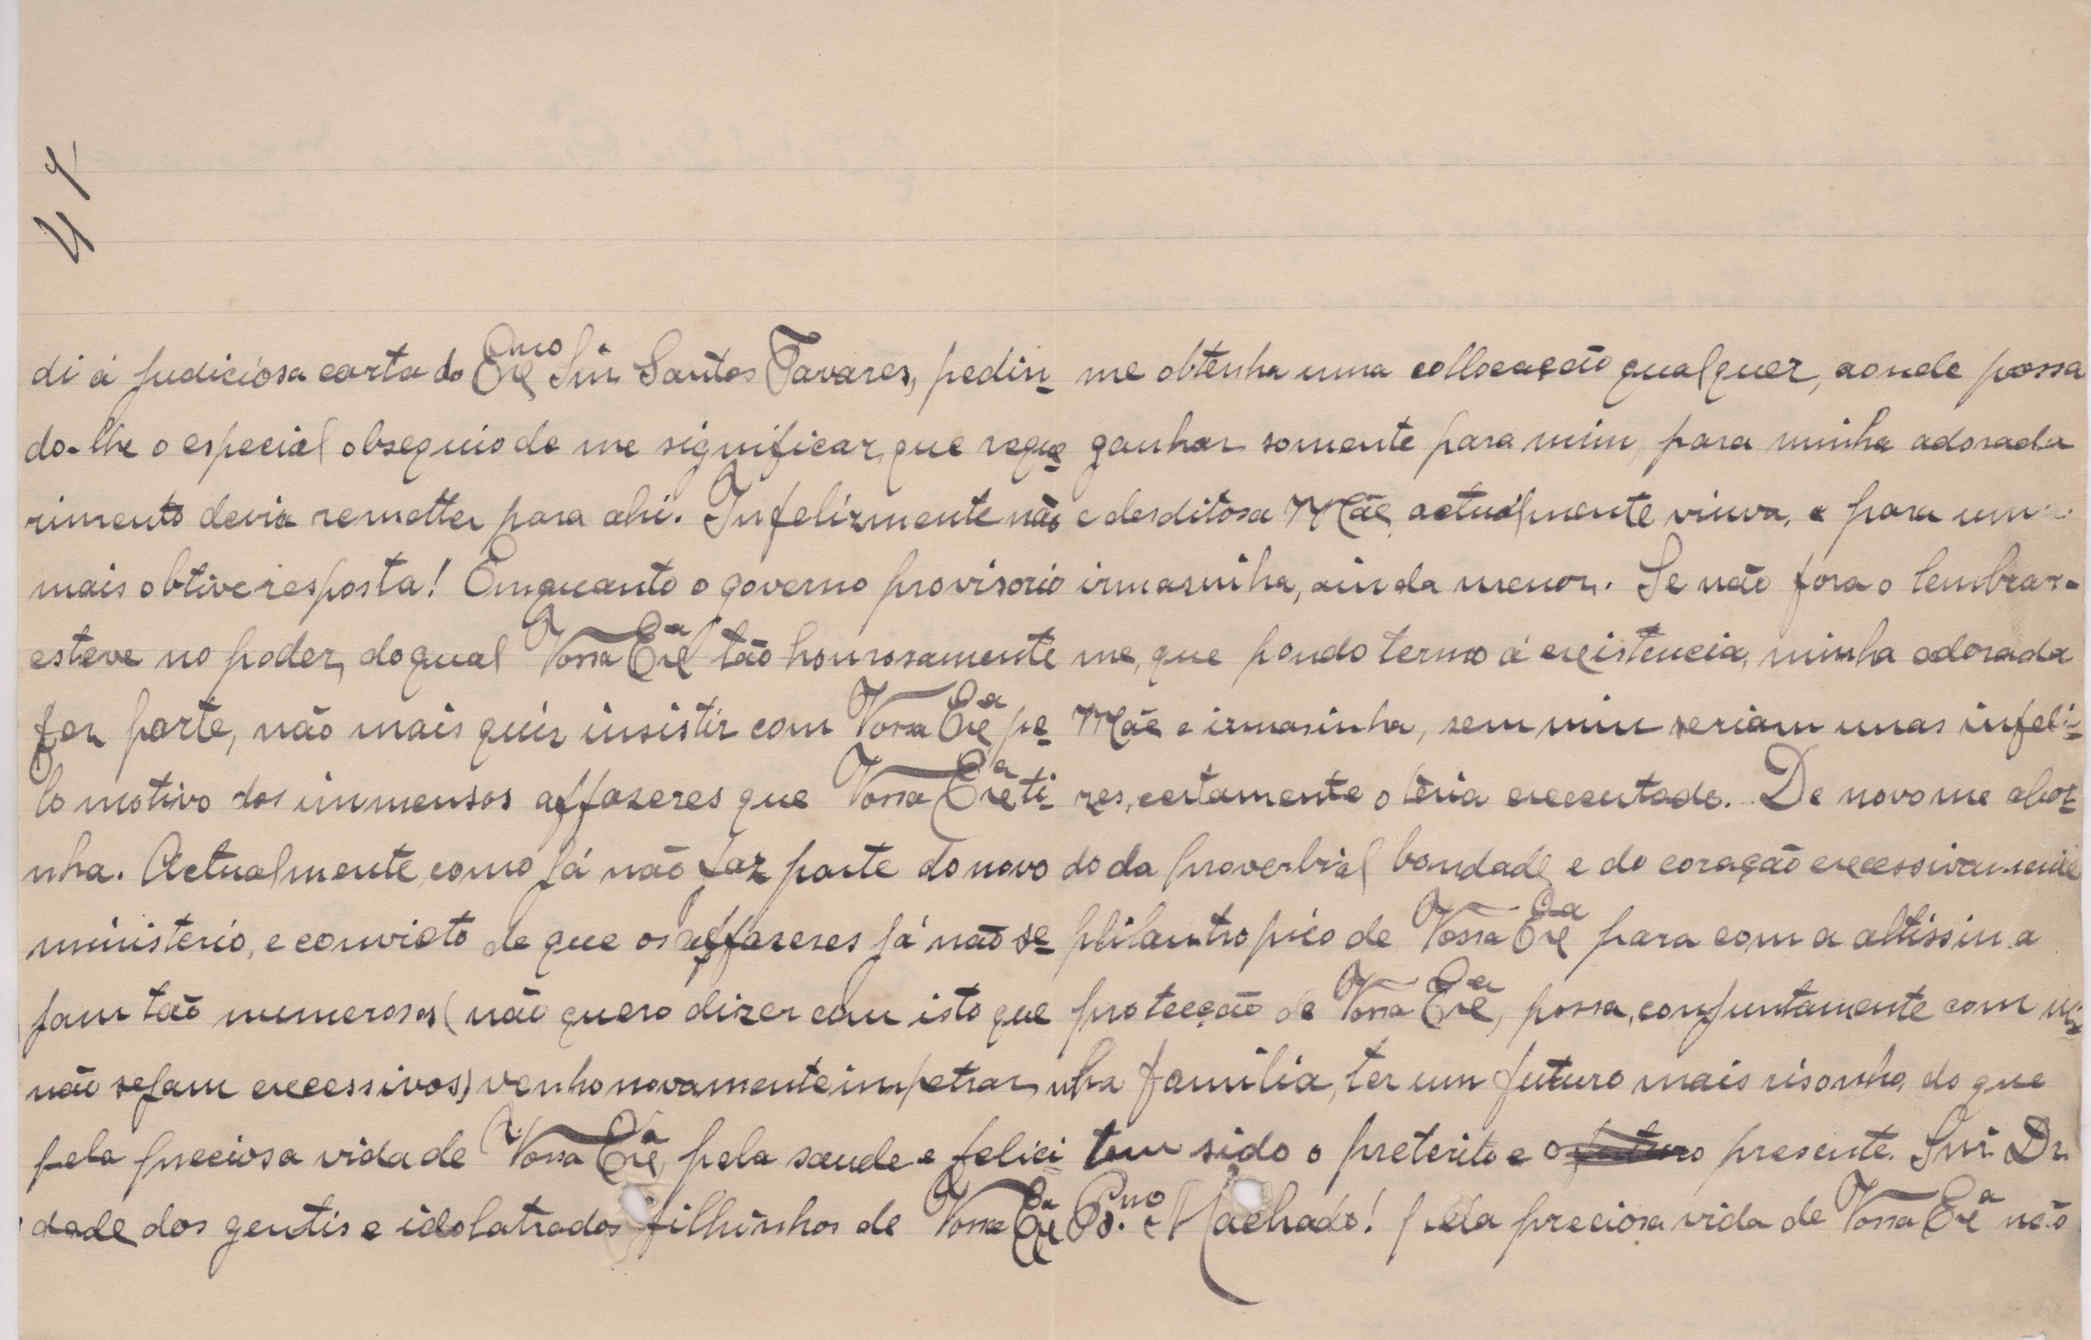 di á judiciosa carta do Exmo Snr. Santos Tavares, pedin-
do-lhe o especial obsequio de me significar, que reque-
rimento devia remetter para ahi. Infelizmente não
mais obtive resposta! Emquanto o governo provisorio
esteve no poder, do qual Vossa Exa tão honrosamente
fez parte, não mais quiz insistir com Vossa Exa pe-
lo motivo dos immensos affazeres que Vossa Exa ti-
nha. Actualmente, como já não faz parte do novo
ministerio, e convicto de que os affazeres já não se-
jam tão numerosos (não quero dizer com isto que
não sejam excessivos) venho novamente impetrar
pela preciosa vida de Vossa Exa, pela saude e felici
dade dos gentis e idolatrados filhinhos de Vossa Exa
me obtenha uma collocação qualquer, aonde possa
ganhar somente para mim, para minha adorada
e desditosa Mãe, actualmente viuva, e para um
irmasinha, ainda menor. Se não fora o lembrar-
me, que pondo termo á existencia, minha adorada
Mãe e irmasinha, sem mim seriam umas infeli-
zes, certamente o teria executado. De novo me abor-
do da proverbial bondade e do coração excessivamente
philantropico de Vossa Exa para com a altissima
protecção de Vossa Exa, possa, conjuntamente com mi-
nha familia, ter um futuro mais risonho, do que
tem sido o preterito e o futuro presente. Snr. Dr.
Bno. Machado! pela preciosa vida de Vossa Exa não